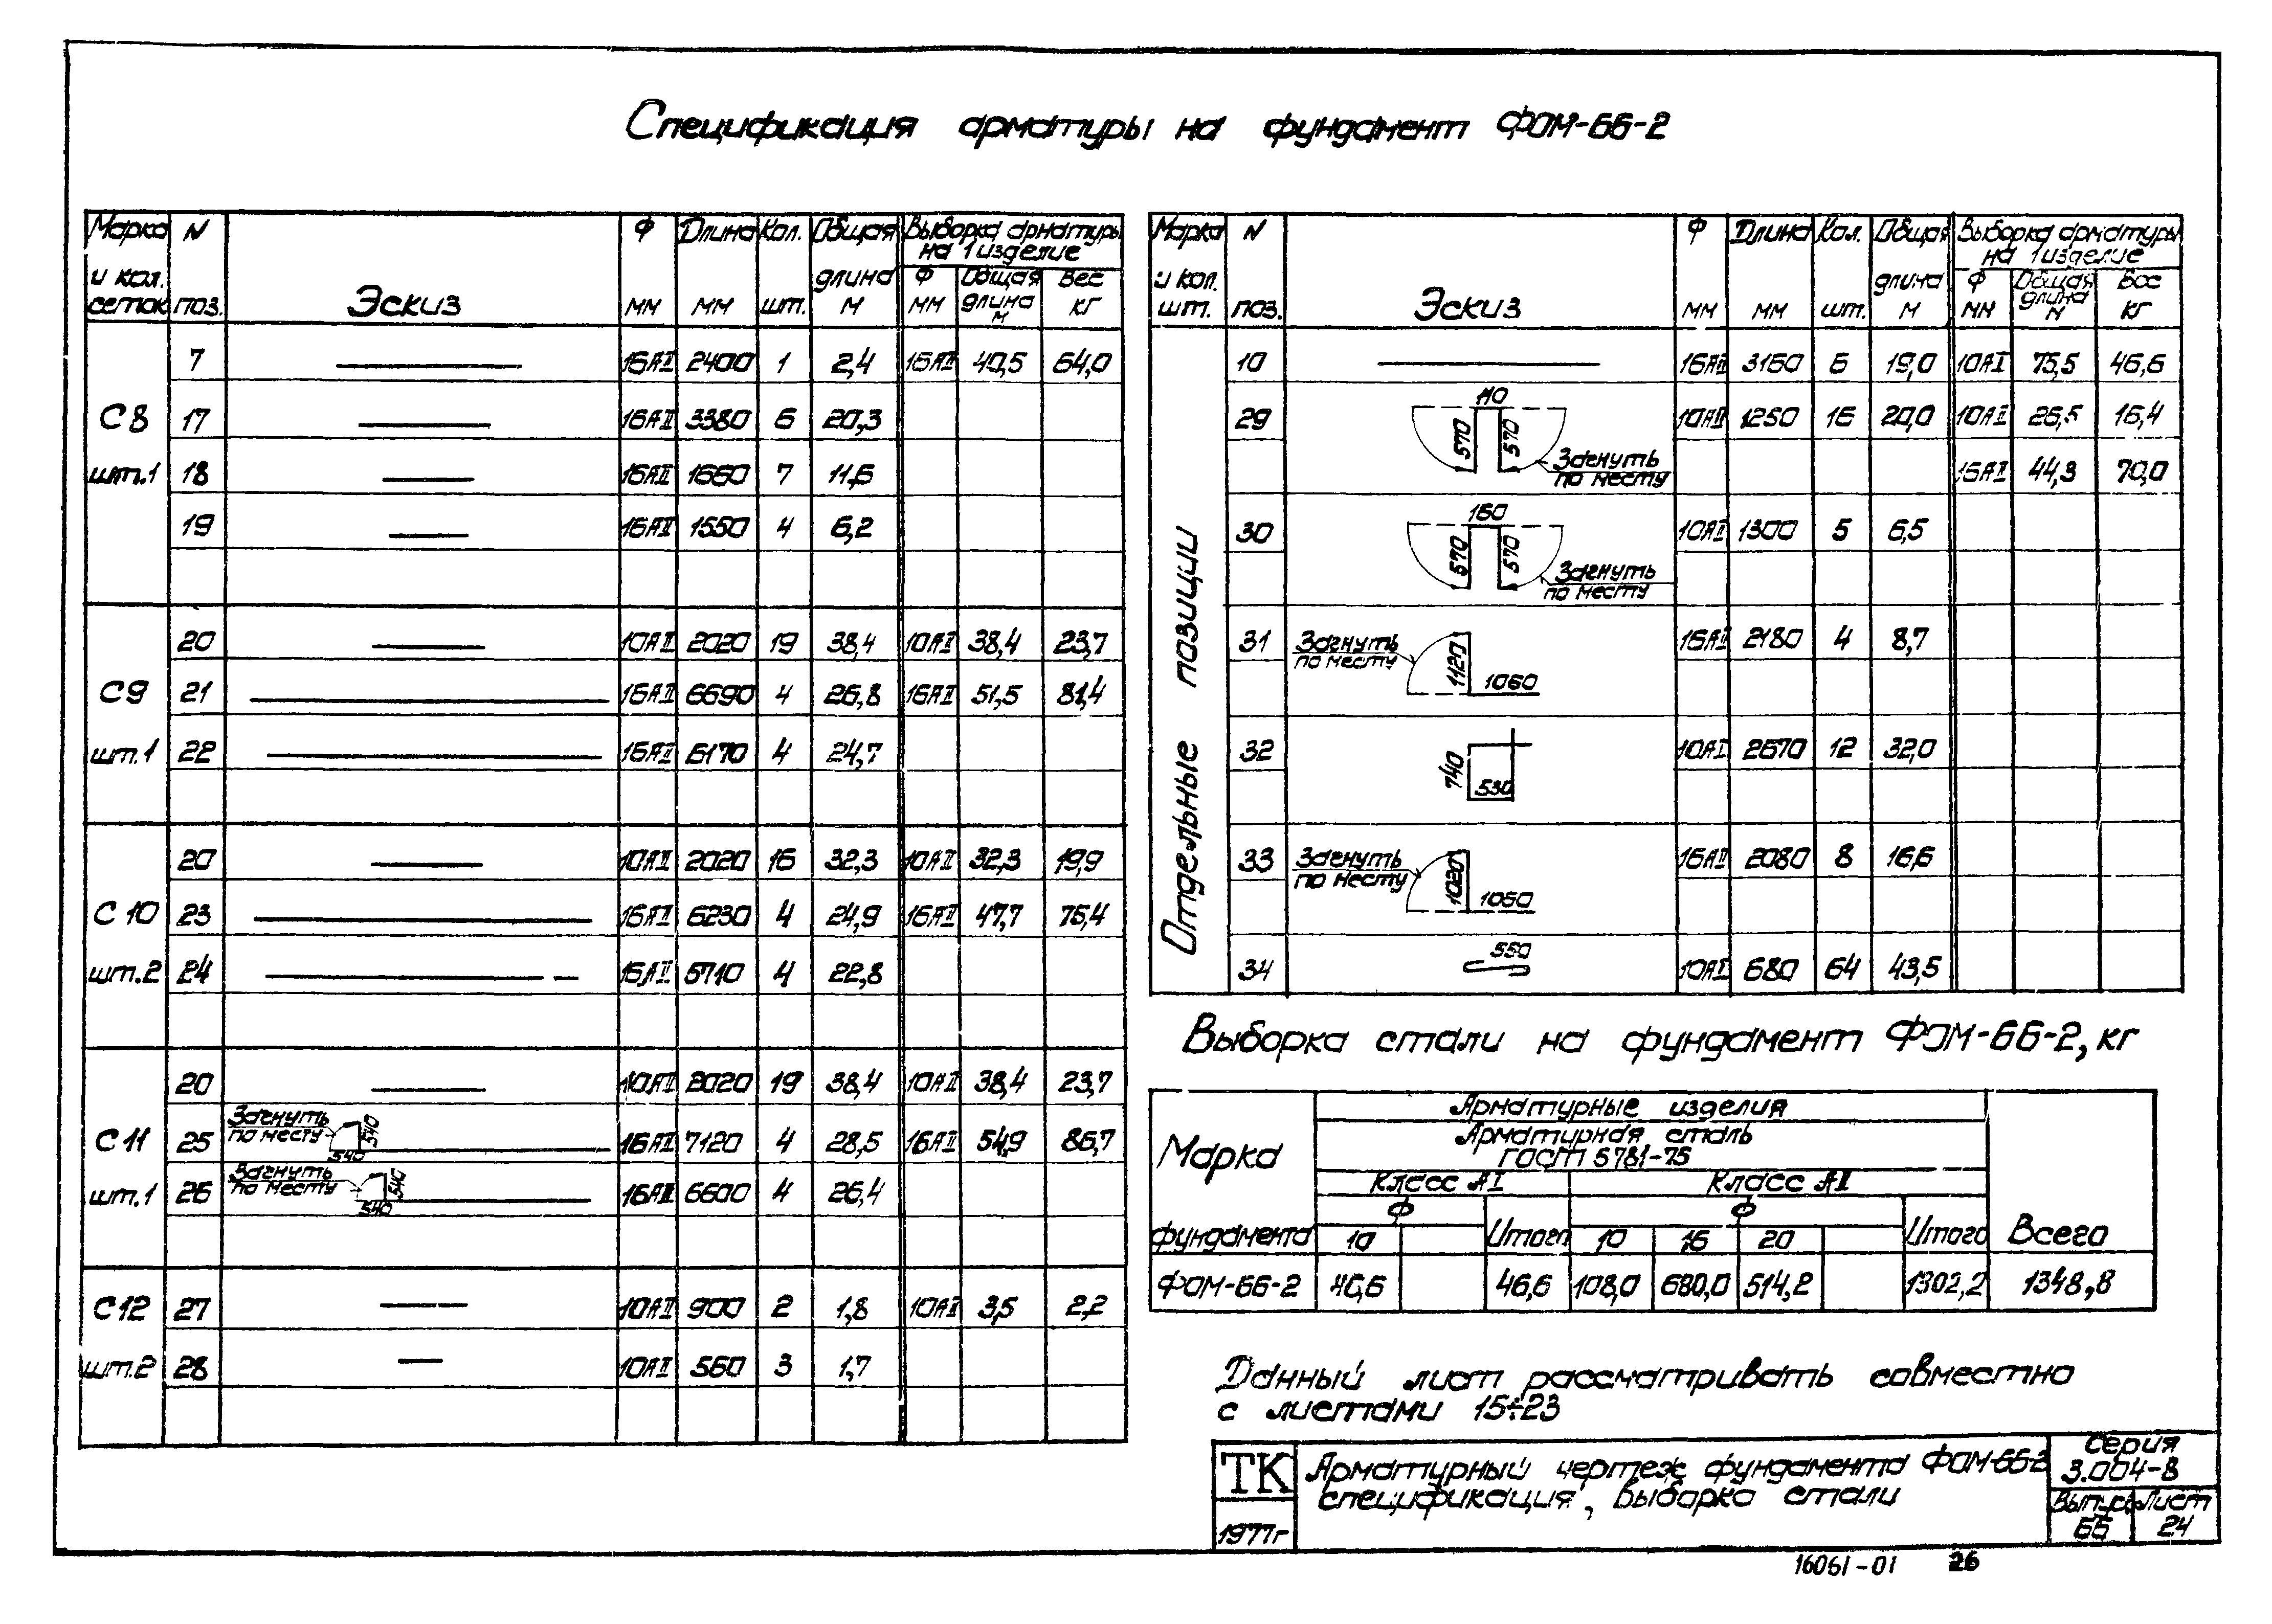 Спецификация арматуры на фундамент ФОМ-6Б-2
Марка и кол. сеток N поз. Эскиз Ф мм Длина мм Кол. шт. Общая длина м Выборка арматуры на 1 изделие Ф мм Общая длина м Вес кг
7 16АII 2400 1 2,4 16АII 40,5 64,0
С8 17 16АII 3380 6 20,3
шт.1 18 16АII 1660 7 11,6
19 16АII 1550 4 6,2
20 10АII 2020 19 38,4 10АII 38,4 23,7
С9 21 16АII 6690 4 26,8 16АII 51,5 81,4
шт.1 22 16АII 6170 4 24,7
20 10АII 2020 16 32,3 10АII 32,3 19,9
С10 23 16АII 6230 4 24,9 16АII 47,7 75,4
шт.2 24 16АII 5710 4 22,8
20 10АII 2020 19 38,4 10АII 38,4 23,7
С11 25 Загнуть по месту 540 540 16АII 7120 4 28,5 16АII 54,9 86,7
шт.1 26 Загнуть по месту 540 540 16АII 6600 4 26,4
С12 27 10АII 900 2 1,8 10АII 3,5 2,2
шт.2 28 10АII 560 3 1,7
Марка и кол. шт. N поз. Эскиз Ф мм Длина мм Кол. шт. Общая длина м Выборка арматуры на 1 изделие Ф мм Общая длина м Вес кг
Отдельные позиции
10 16АII 3160 6 19,0 10АI 75,5 46,6
29 110 570 570 Загнуть по месту 10АII 1250 16 20,0 10АII 26,5 16,4
16АII 44,3 70,0
30 160 570 570 Загнуть по месту 10АII 1300 5 6,5
31 Загнуть по месту 1120 1060 16АII 2180 4 8,7
32 740 530 10АI 2670 12 32,0
33 Загнуть по месту 1020 1060 16АII 2080 8 16,6
34 550 10АI 680 64 43,5
Выборка стали на фундамент ФОМ-6Б-2, кг
Марка фундамента
Арматурные изделия
Арматурная сталь
ГОСТ 5781-75
Класс АI Класс АII
Ф Итого Ф Итого Всего
10 10 16 20
ФОМ-6Б-2 46,6 46,6 108,0 680,0 514,2 1302,2 1348,8
Данный лист рассматривать совместно
с листами 15÷23
ТК
1977г
Арматурный чертеж фундамента ФОМ-6Б-2
спецификация, выборка стали
Серия
3.004-8
Выпуск Лист
6Б 24
16061-01 26